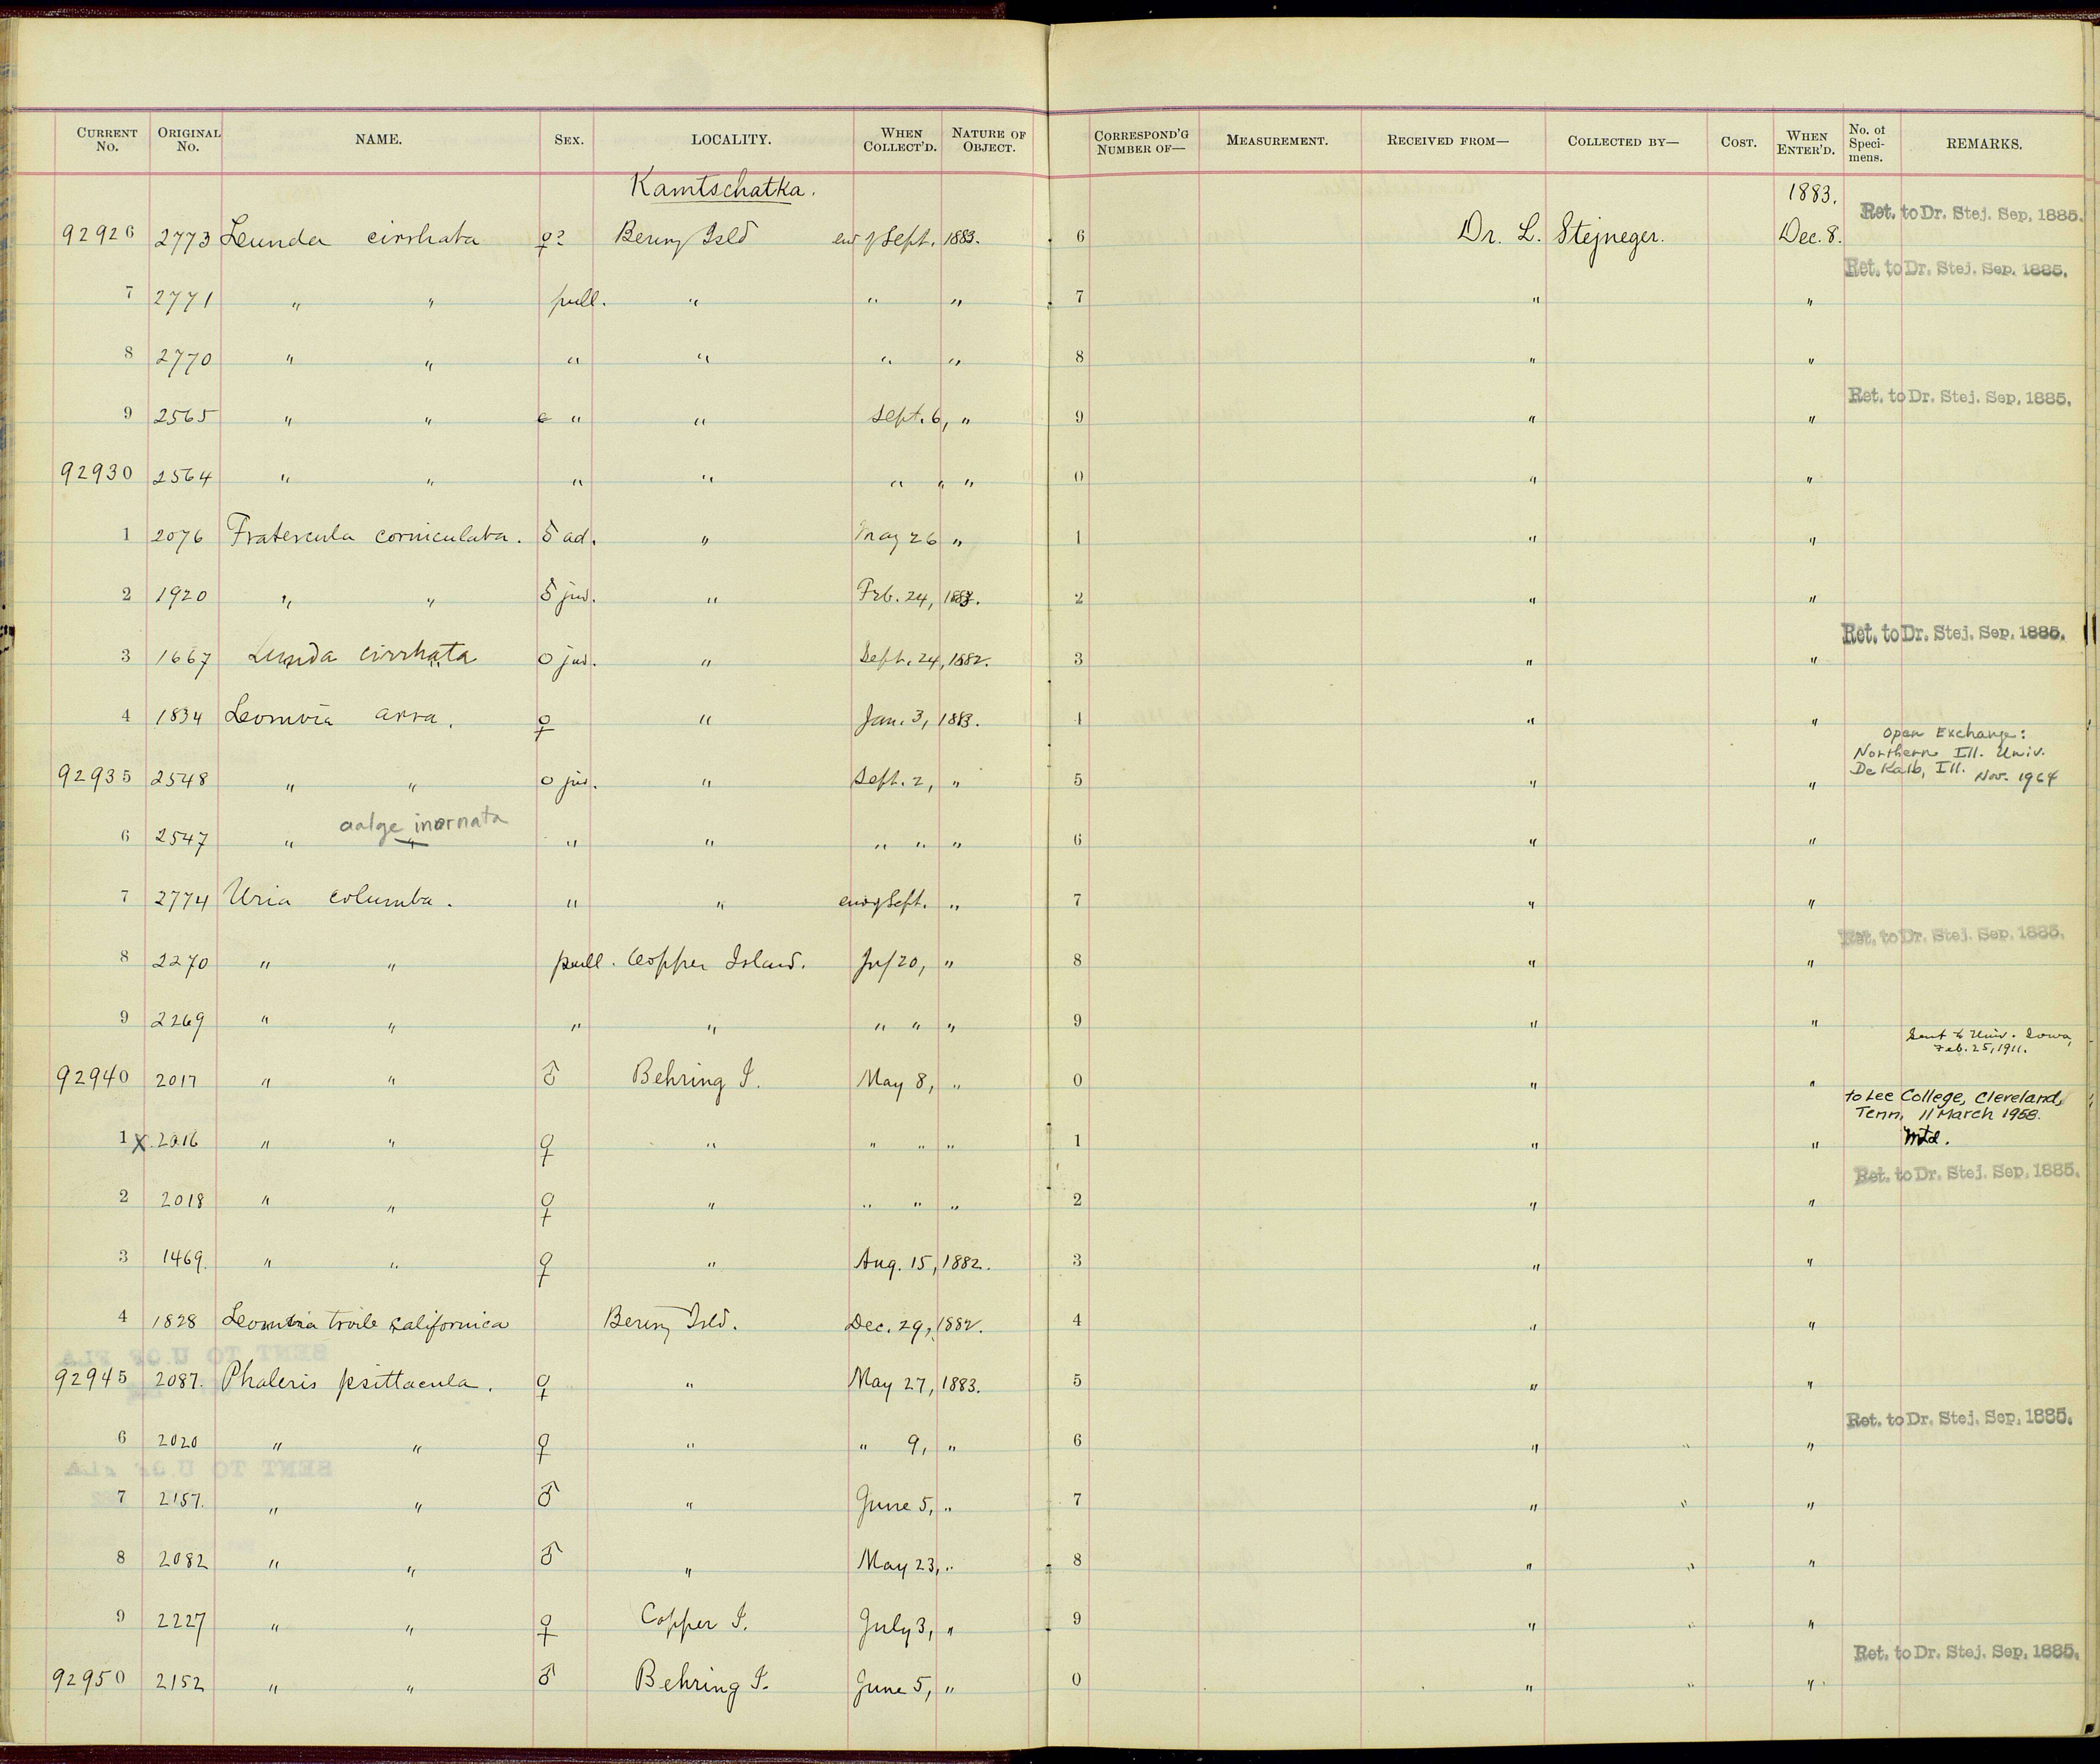 CURRENT No. ORIGINAL No. NAME. SEX. LOCALITY. WHEN COLLECT'D. NATURE OF OBJECT. CORRESPOND'G NUMBER OF— MEASUREMENT. RECEIVED FROM— COLLECTED BY— COST. WHEN ENTER'D. No. of Specimens. REMARKS.
Kamtschatka. 1883.
Ret. to Dr. Stej. Sep. 1885.
92926 2773 Lunda cirrhata ♀? Bering Isld end of Sept. 1883. 6 Dr. L. Stejneger. Dec. 8.
Ret. to Dr. Stej. Sep. 1885.
7 2771 " " pull. " " " 7 " "
8 2770 " " " " " " 8 " "
Ret. to Dr. Stej. Sep. 1885.
9 2565 " " " " Sept. 6, " 9 " "
92930 2564 " " " " " " " 0 " "
1 2076 Fratercula corniculata. ♂ ad. " May 26 " 1 " "
2 1920 " " ♂ juv. " Feb. 24, 1883. 2 " "
Ret. to Dr. Stej. Sep. 1885.
3 1667 Lunda cirrhata o juv. " Sept. 24, 1882. 3 " "
4 1834 Lomvia arra. ♀ " Jan. 3, 1883. 4 " "
Open Exchange:
Northern Ill. Univ.
De Kalb, Ill. Nov. 1964
92935 2548 " " o juv. " Sept. 2, " 5 " "
aalge inornata
6 2547 " " " " " " " 6 " "
7 2774 Uria columba. " " end of Sept. " 7 " "
Ret. to Dr. Stej. Sep. 1885.
8 2270 " " pull. Copper Island. July 20, " 8 " "
9 2269 " " " " " " " 9 " "
Sent to Univ. Iowa,
Feb. 25, 1911.
92940 2017 " " ♂ Behring I. May 8, " 0 " "
to Lee College, Cleveland,
Tenn, 11 March 1958.
1 X 2016 " " ♀ " " " " 1 " " Mtd.
Ret. to Dr. Stej. Sep. 1885.
2 2018 " " ♀ " " " " 2 " "
3 1469. " " ♀ " Aug. 15, 1882. 3 " "
4 1828 Lomvia troile californica Bering Isld. Dec. 29, 1882. 4 " "
92945 2087. Phaleris psittacula. ♀ " May 27, 1883. 5 " "
Ret. to Dr. Stej. Sep. 1885.
6 2020 " " ♀ " " 9, " 6 " " "
7 2157. " " ♂ " June 5, " 7 " " "
8 2082 " " ♂ " May 23, " 8 " " "
9 2227 " " ♀ Copper I. July 3, " 9 " " "
Ret. to Dr. Stej. Sep. 1885.
92950 2152 " " ♂ Behring I. June 5, " 0 " " "